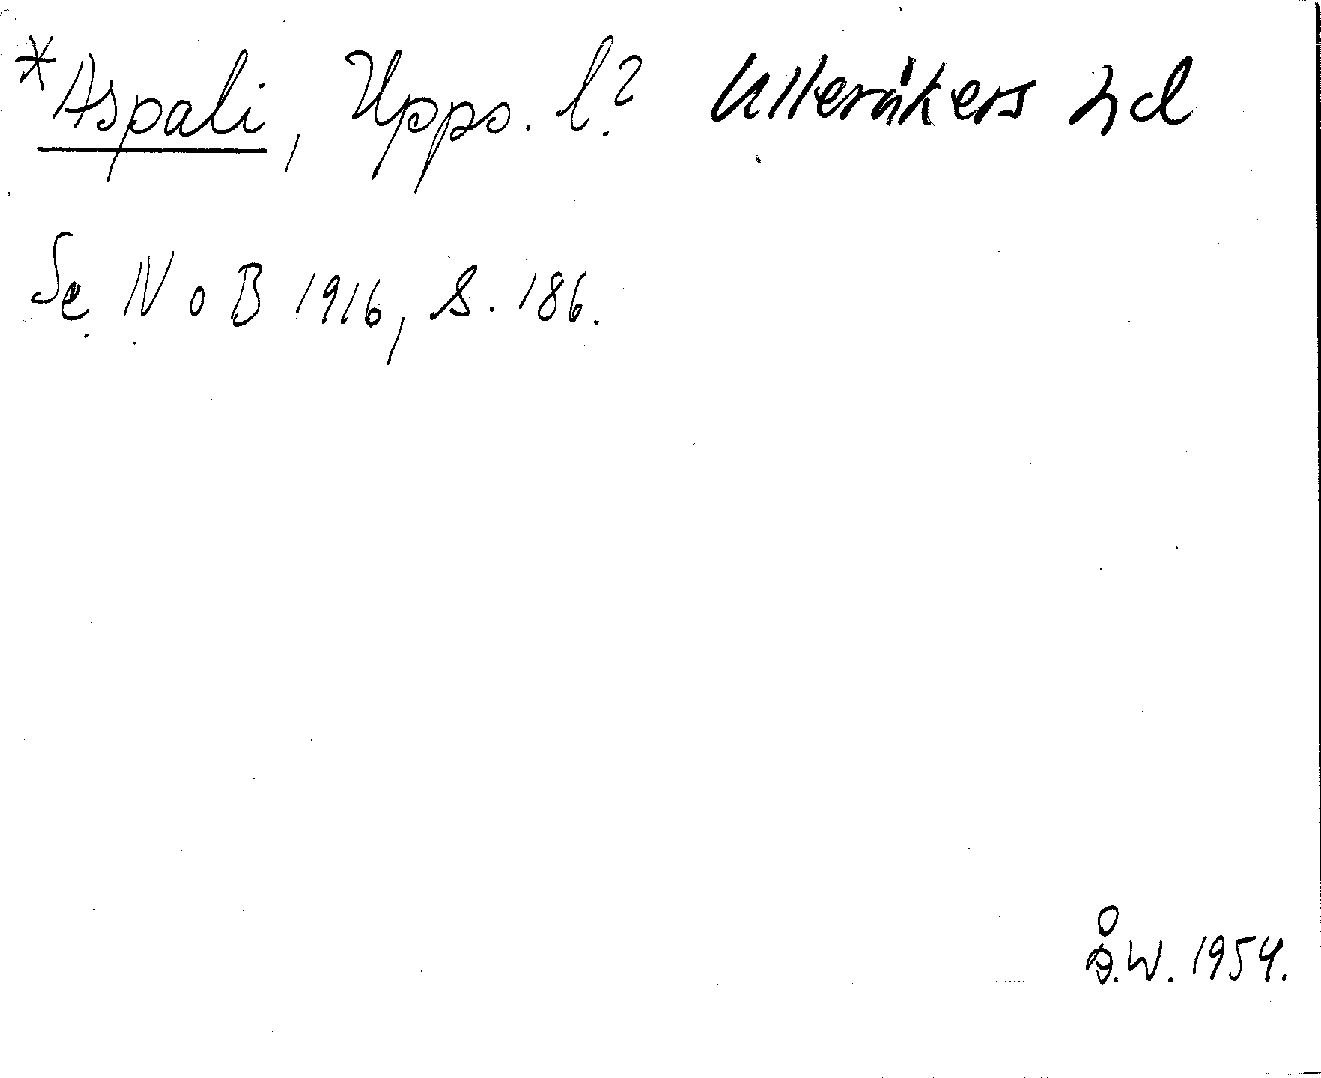 *Aspali, Upps. l.? Ulleråkers hd
Se NoB 1916, S. 186.
Å.W. 1954.